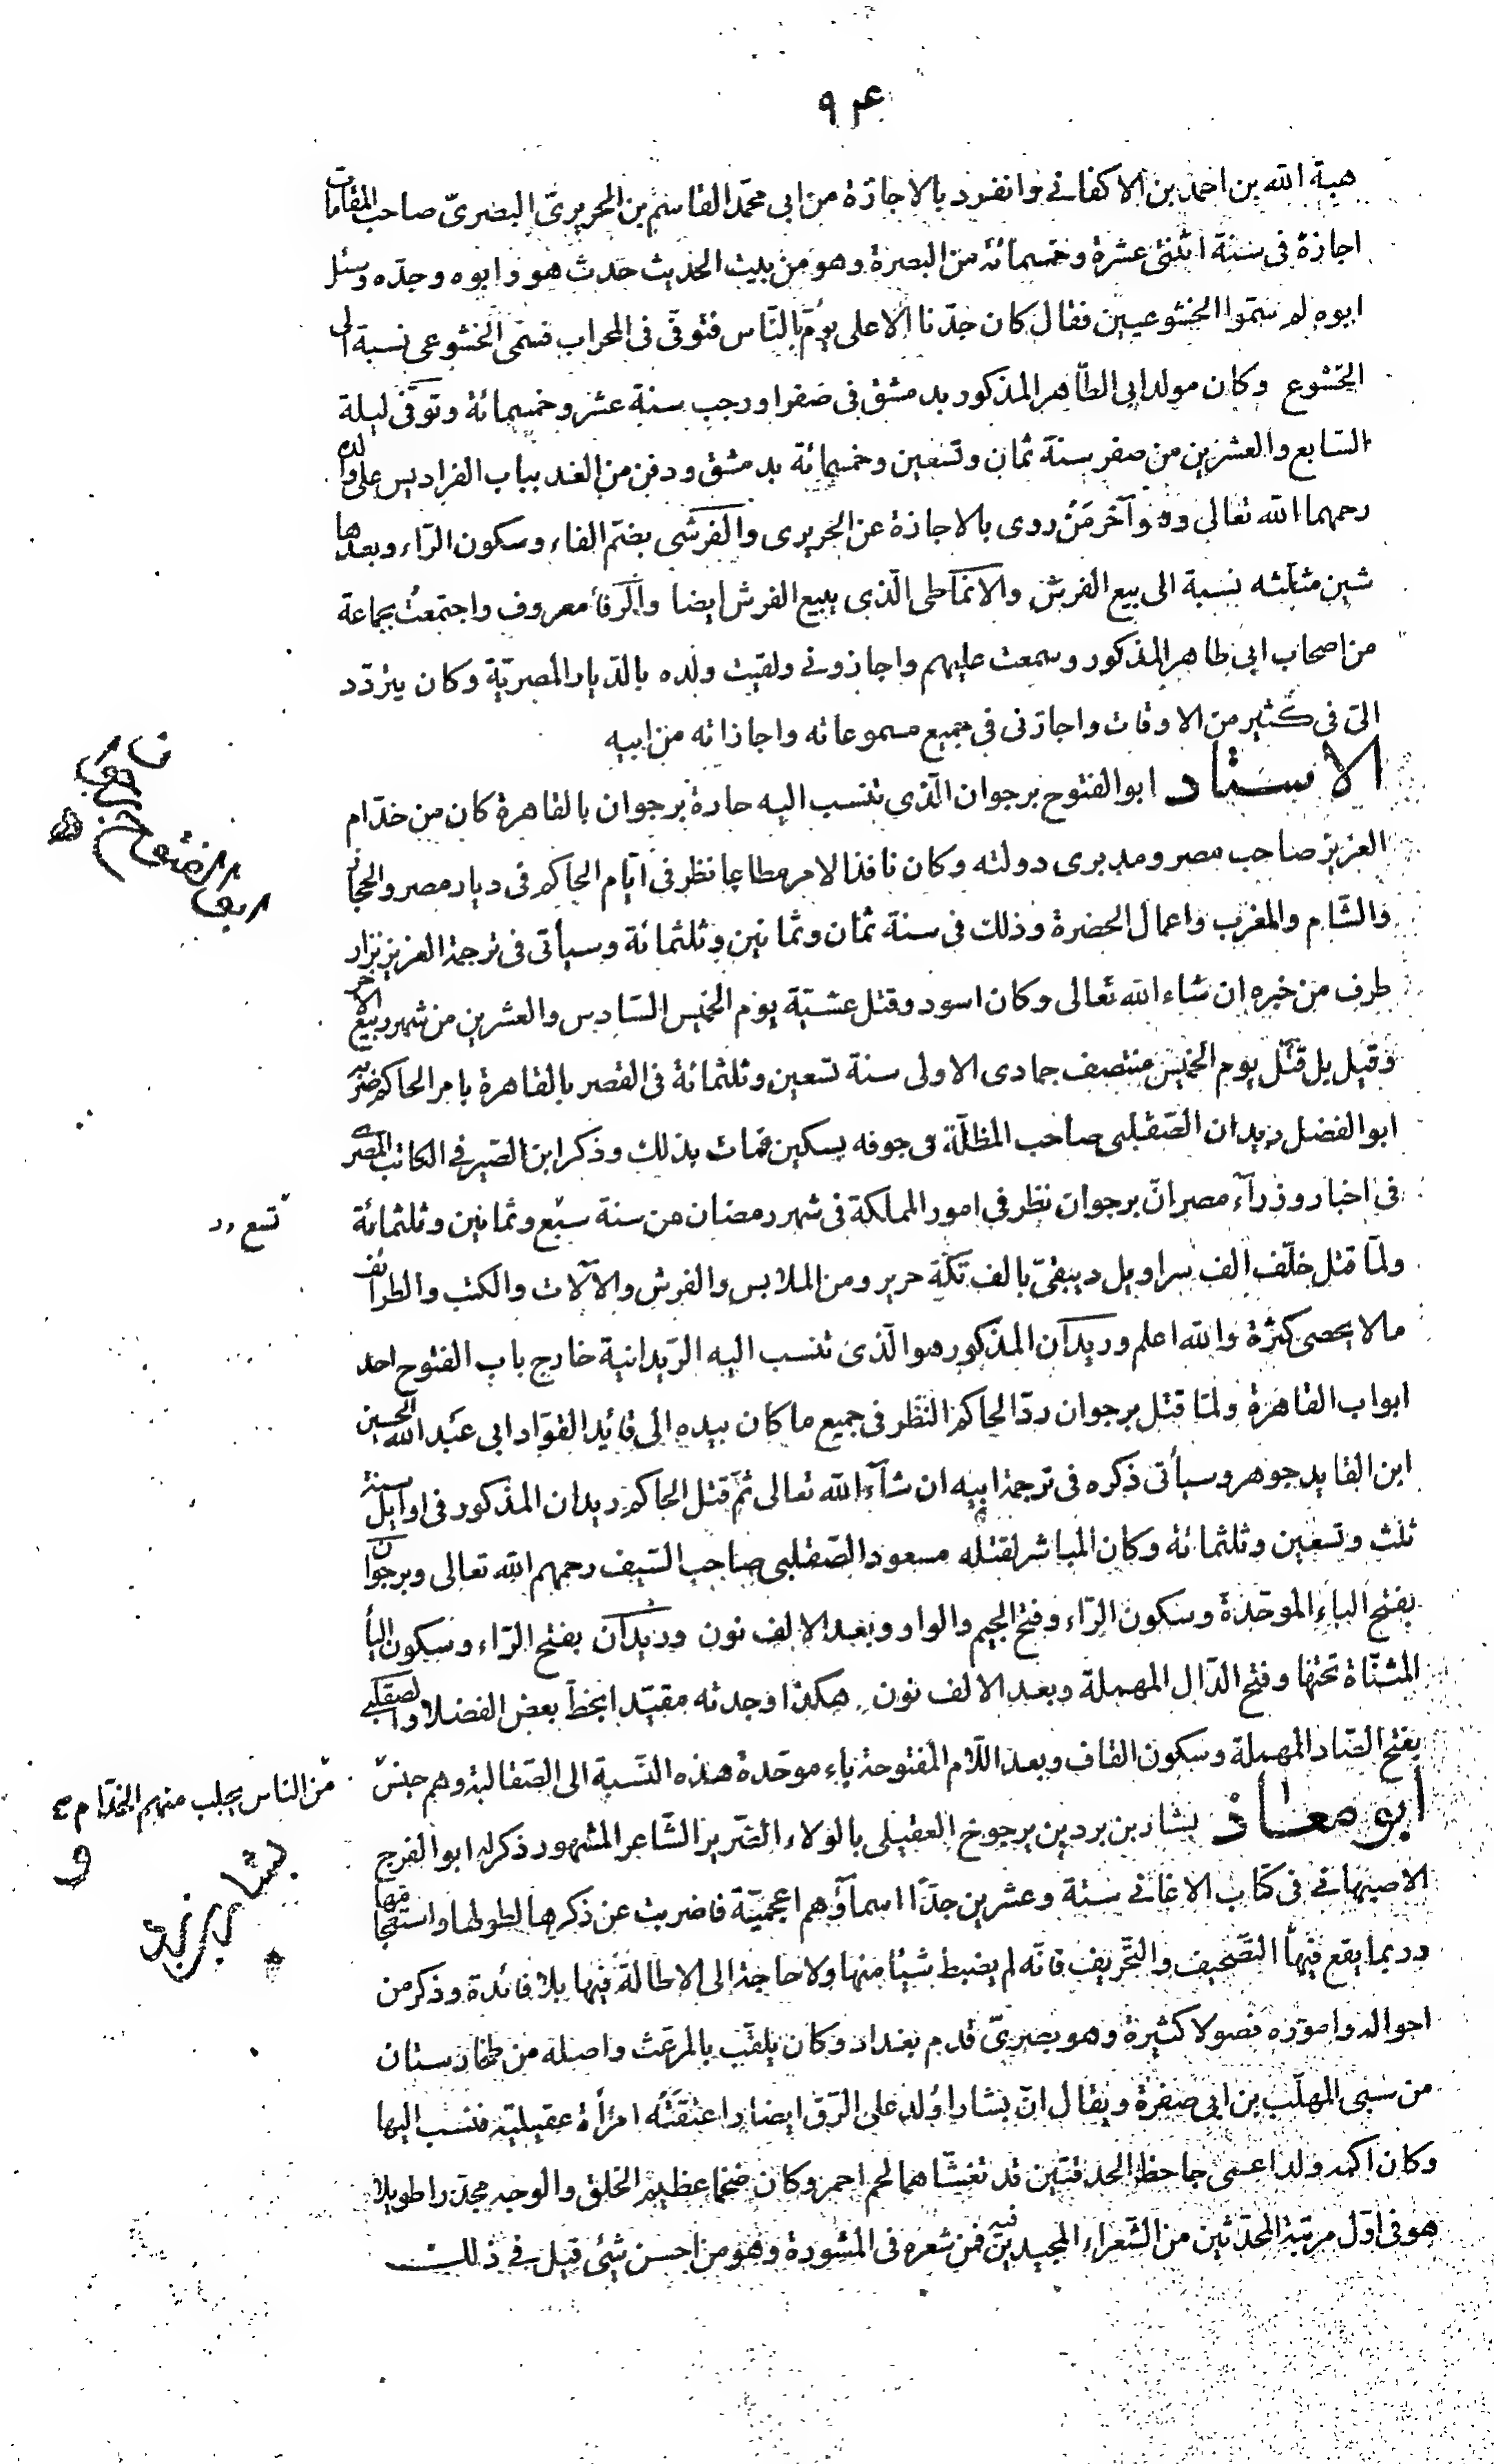 ٩٤
هبة الله بن احمد بن الاكفاني وانفرد بالاجازة من ابى محمّد القاسم بن الحريرىّ البصرىّ صاحب المقامات
اجازة فى سنة اثنتى عشرة وخمسمائة من البصرة وهو من بيت الحديث حدث هو وابوه وجدّه وسئل
ابوه لم سمّوا الخشوعيين فقال كان جدّنا الاعلى يؤمّ بالنّاس فتوفّى فى المحراب فسمّى الخشوعى نسبة الى
الخشوع وكان مولد ابى الطّاهر المذكور بدمشق فى صفر او رجب سنة عشر وخمسمائة وتوفّى ليلة
السّابع والعشرين من صفر سنة ثمان وتسعين وخمسمائة بدمشق ودفن من الغد بباب الفراديس على والده
رحمهما الله تعالى وهو آخر مَنْ روى بالاجازة عن الحريرى والفرشى بضمّ الفاء وسكون الرّاء وبعدها
شين مثلّثه نسبة الى بيع الفرش والانماطى الّذى يبيع الفرش ايضا والرفّا معروف واجتمعتُ بجماعة
من اصحاب ابى طاهر المذكور وسمعت عليهم واجازونى ولقيت ولده بالدّيار المصريّة وكان يتردّد
الىّ فى كثير من الاوقات واجازنى فى جميع مسموعاته واجازاته من ابيه
الاستاد ابو الفتوح برجوان الّذى تنسب اليه حارة برجوان بالقاهرة كان من خدّام
العزيز صاحب مصر ومدبرى دولته وكان نافذ الامر مطاعا نظر فى ايّام الحاكم فى ديار مصر والحجاز
والشّام والمغرب واعمال الحضرة وذلك فى سنة ثمان وثمانين وثلثمائة وسيأتى فى ترجمة العزيز نزار
طرف من خبره ان شاء الله تعالى وكان اسود وقتل عشيّة يوم الخميس السّادس والعشرين من شهر ربيع الاخر
وقيل بل قتل يوم الخميس منتصف جمادى الاولى سنة تسعين وثلثمائة فى القصر بالقاهرة بامر الحاكم ضربه
ابو الفضل ريدان الصّقلبى صاحب المظلّة فى جوفه بسكين فمات بذلك وذكر ابن الصّيرفى الكاتب المصرى
فى اخبار وزرآء مصر انّ برجوان نظر فى امور المملكة فى شهر رمضان من سنة سبع وثمانين وثلثمائة
تسع
ولمّا قتل خلّف الف سراويل دبيقىّ بالف تكّة حرير ومن الملابس والفرش والآلات والكتب والطرائف
مالا يحصى كثرة والله اعلم وريدان المذكور هو الّذى تنسب اليه الرّيدانية خارج باب الفتوح احد
ابواب القاهرة ولمّا قتل برجوان ردّ الحاكم النّظر فى جميع ما كان بيده الى قائد القوّاد ابى عبد الله الحسين
ابن القايد جوهر وسيأتى ذكره فى ترجمة ابيه ان شآء الله تعالى ثمّ قتل الحاكم ريدان المذكور فى اوايل سنة
ثلث وتسعين وثلثمائة وكان المباشر لقتله مسعود الصّقلبى صاحب السّيف رحمهم الله تعالى وبرجوان
بفتح الباء الموحّدة وسكون الرّاء وفتح الجيم والواو وبعد الالف نون وريدان بفتح الرّاء وسكون اليا
المثنّاة تحتها وفتح الدّال المهملة وبعد الالف نون هكذا وجدته مقيّدا بخطّ بعض الفضلا والصقلبى
بفتح الصّاد المهملة وسكون القاف وبعد اللّام المفتوحة باء موحّدة هذه النّسبة الى الصّقالبة وهم جنس
من الناس يجلب منهم الخدّام
ابو معاذ بشار بن برد بن يرجوخ العقيلى بالولاء الضّرير الشّاعر المشهور ذكر له ابو الفرج
بشار برد
الاصبهانى فى كتاب الاغانى ستة وعشرين جدّا اسماؤهم اعجميّة فاضربت عن ذكرها لطولها واستعجامها
وربما يقع فيها التّصحيف والتّحريف فانّه لم يضبط شيئا منها ولا حاجة الى الاطالة فيها بلا فائدة وذكر من
احواله واموره فصولا كثيرة وهو بصرىّ قدم بغداد وكان يلقّب بالمرعّث واصله من طخارستان
من سبى المهلّب بن ابى صفرة ويقال انّ بشارا وُلد على الرّقّ ايضا واعتقته امرأة عقيلية فنسب اليها
وكان اكمه ولد اعمى جاحظ الحدقتين قد تغشّاهما لحم احمر وكان ضخما عظيم الخلق والوجه مجدّرا طويلا
هو فى اوّل مرتبة المحدّثين من الشّعراء المجيدين فيه فمن شعره فى المشورة وهو من احسن شئ قيل فى ذلك